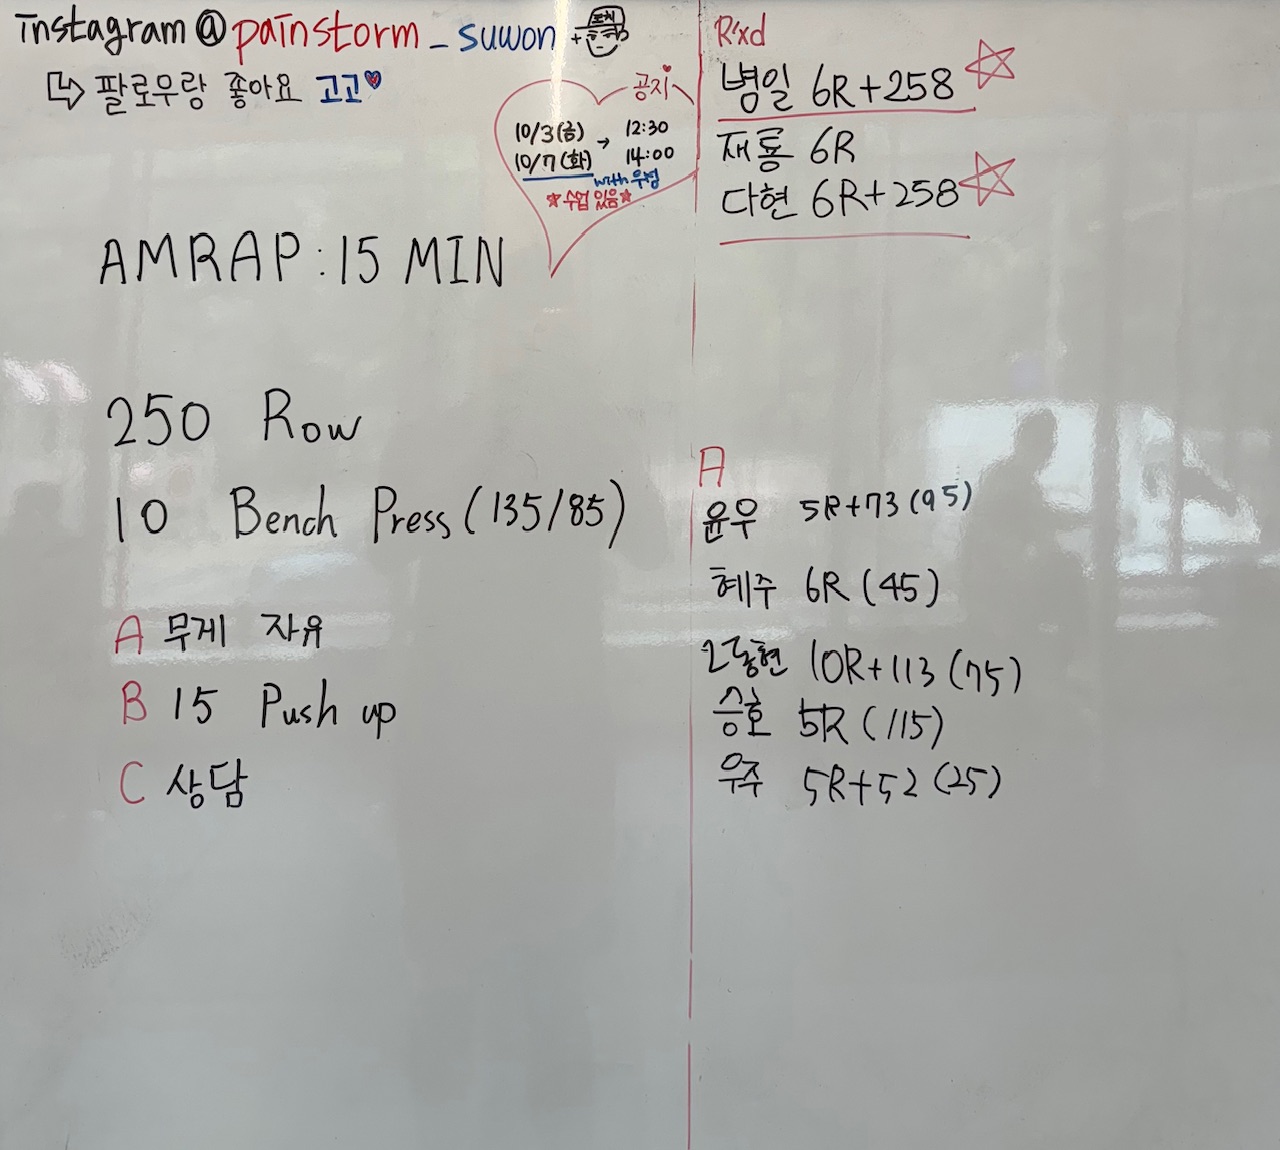 Instagram@painstorm_suwon
팔로우랑 좋아요 고고
공지
10/3(금) → 12:30
10/7(화) 14:00
with 우성
★수업 있음★
AMRAP : 15 MIN
250 Row
10 Bench Press (135/85)
A 무게 자유
B 15 Push up
C 상담
R'xd
병일 6R+258
재룡 6R
다현 6R+258
A
윤우 5R+73 (95)
혜주 6R (45)
2동현 10R+113 (75)
승호 5R (115)
우주 5R+52 (25)